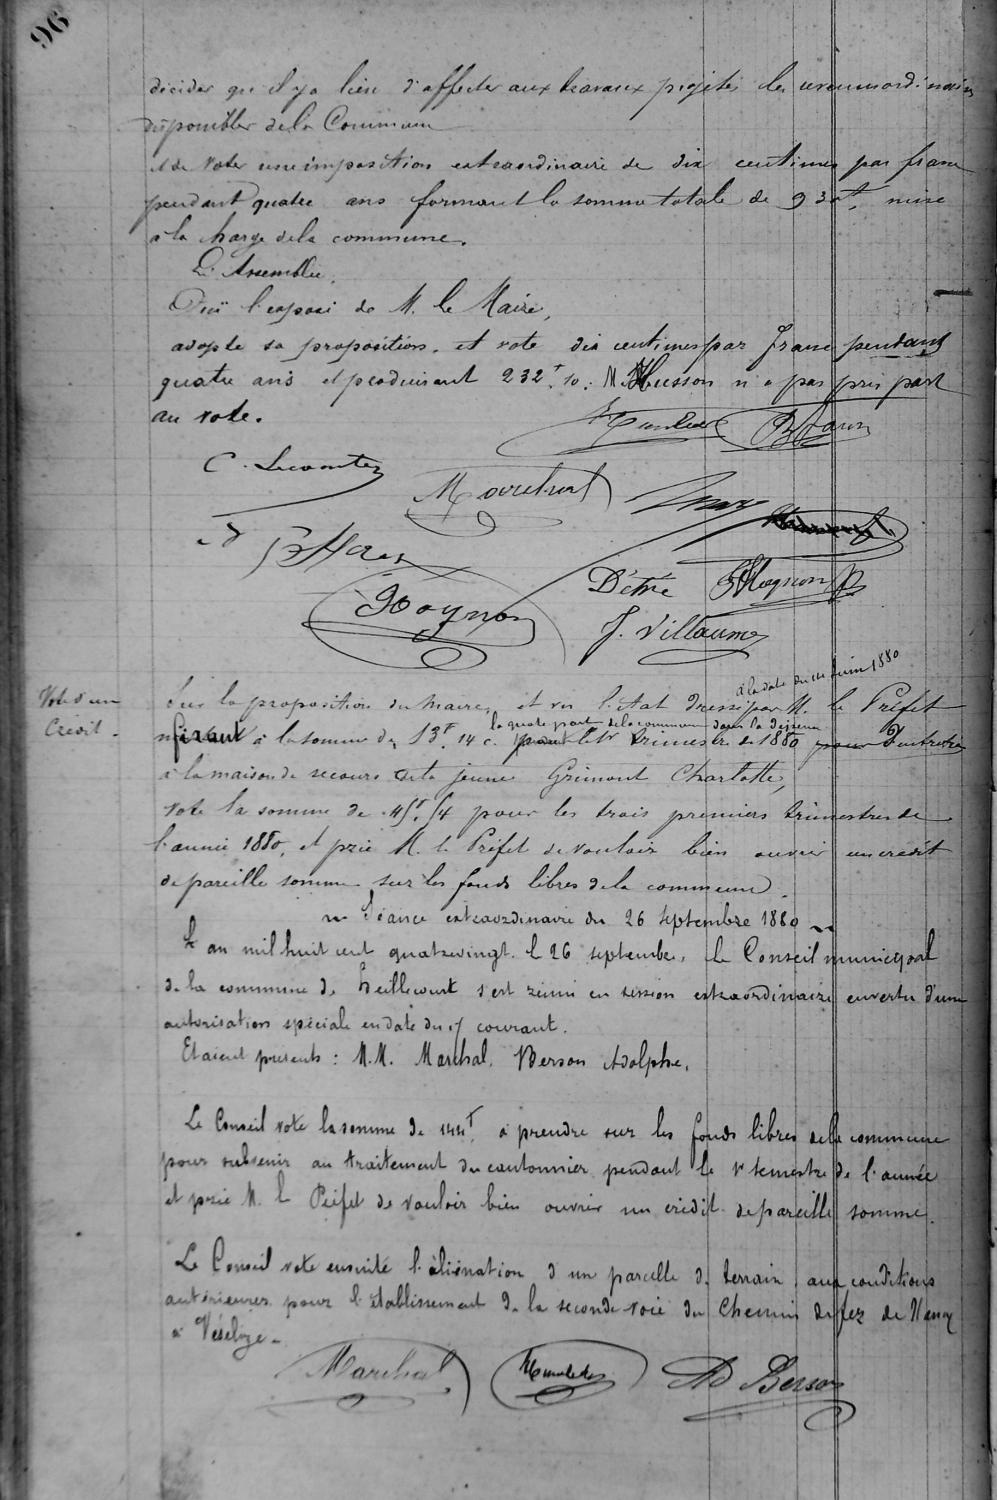 96
décider qu'il y a lieu d'affecter aux travaux projetés les
disponibles de la Commune
et de voter une imposition extraordinaire de dix centimes par franc
pendant quatre ans formant la somme totale de 930f. mise
à la charge de la commune.
L'Assemblée,
Ouï l'exposé de M. le Maire,
adopte sa proposition, et vote dix centimes par franc pendant
quatre ans et produisant 232f. 10. M. Husson n'a pas pris part
au vote.
C. Lecomte
Marchal
Détré
J. Villaume
Vote d'un
Crédit.
à la date du 14 Juin 1880
Sur la proposition du maire, et vu l'Etat dressé par M. le Préfet
fixant à la somme de 13f. 14 c. le 1er trimestre de 1880
la quote part de la commune dans la dépense
à la maison de secours de la jeune Grimont Charlotte,
vote la somme de pour les trois premiers trimestres de
l'année 1880, et prie M. le Préfet de vouloir bien ouvrir un crédit
de pareille somme sur les fonds libres de la commune.
Séance extraordinaire du 26 septembre 1880
L'an mil huit cent quatrevingt le 26 septembre, le Conseil municipal
de la commune de Heillecourt s'est réuni en session extraordinaire en vertu d'une
autorisation spéciale en date du courant.
Etaient présents : M.M. Marchal, Berson Adolphe,
Le Conseil vote la somme de 144f. à prendre sur les fonds libres de la commune
pour subvenir au traitement du cantonnier pendant le semestre de l'année
et prie M. le Préfet de vouloir bien ouvrir un crédit de pareille somme.
Le Conseil vote ensuite l'aliénation d'un parcelle de terrain aux conditions
antérieures pour l'établissement de la seconde voie du Chemin de fer de Nancy
à Vézelize.
Marchal
Ad Berson